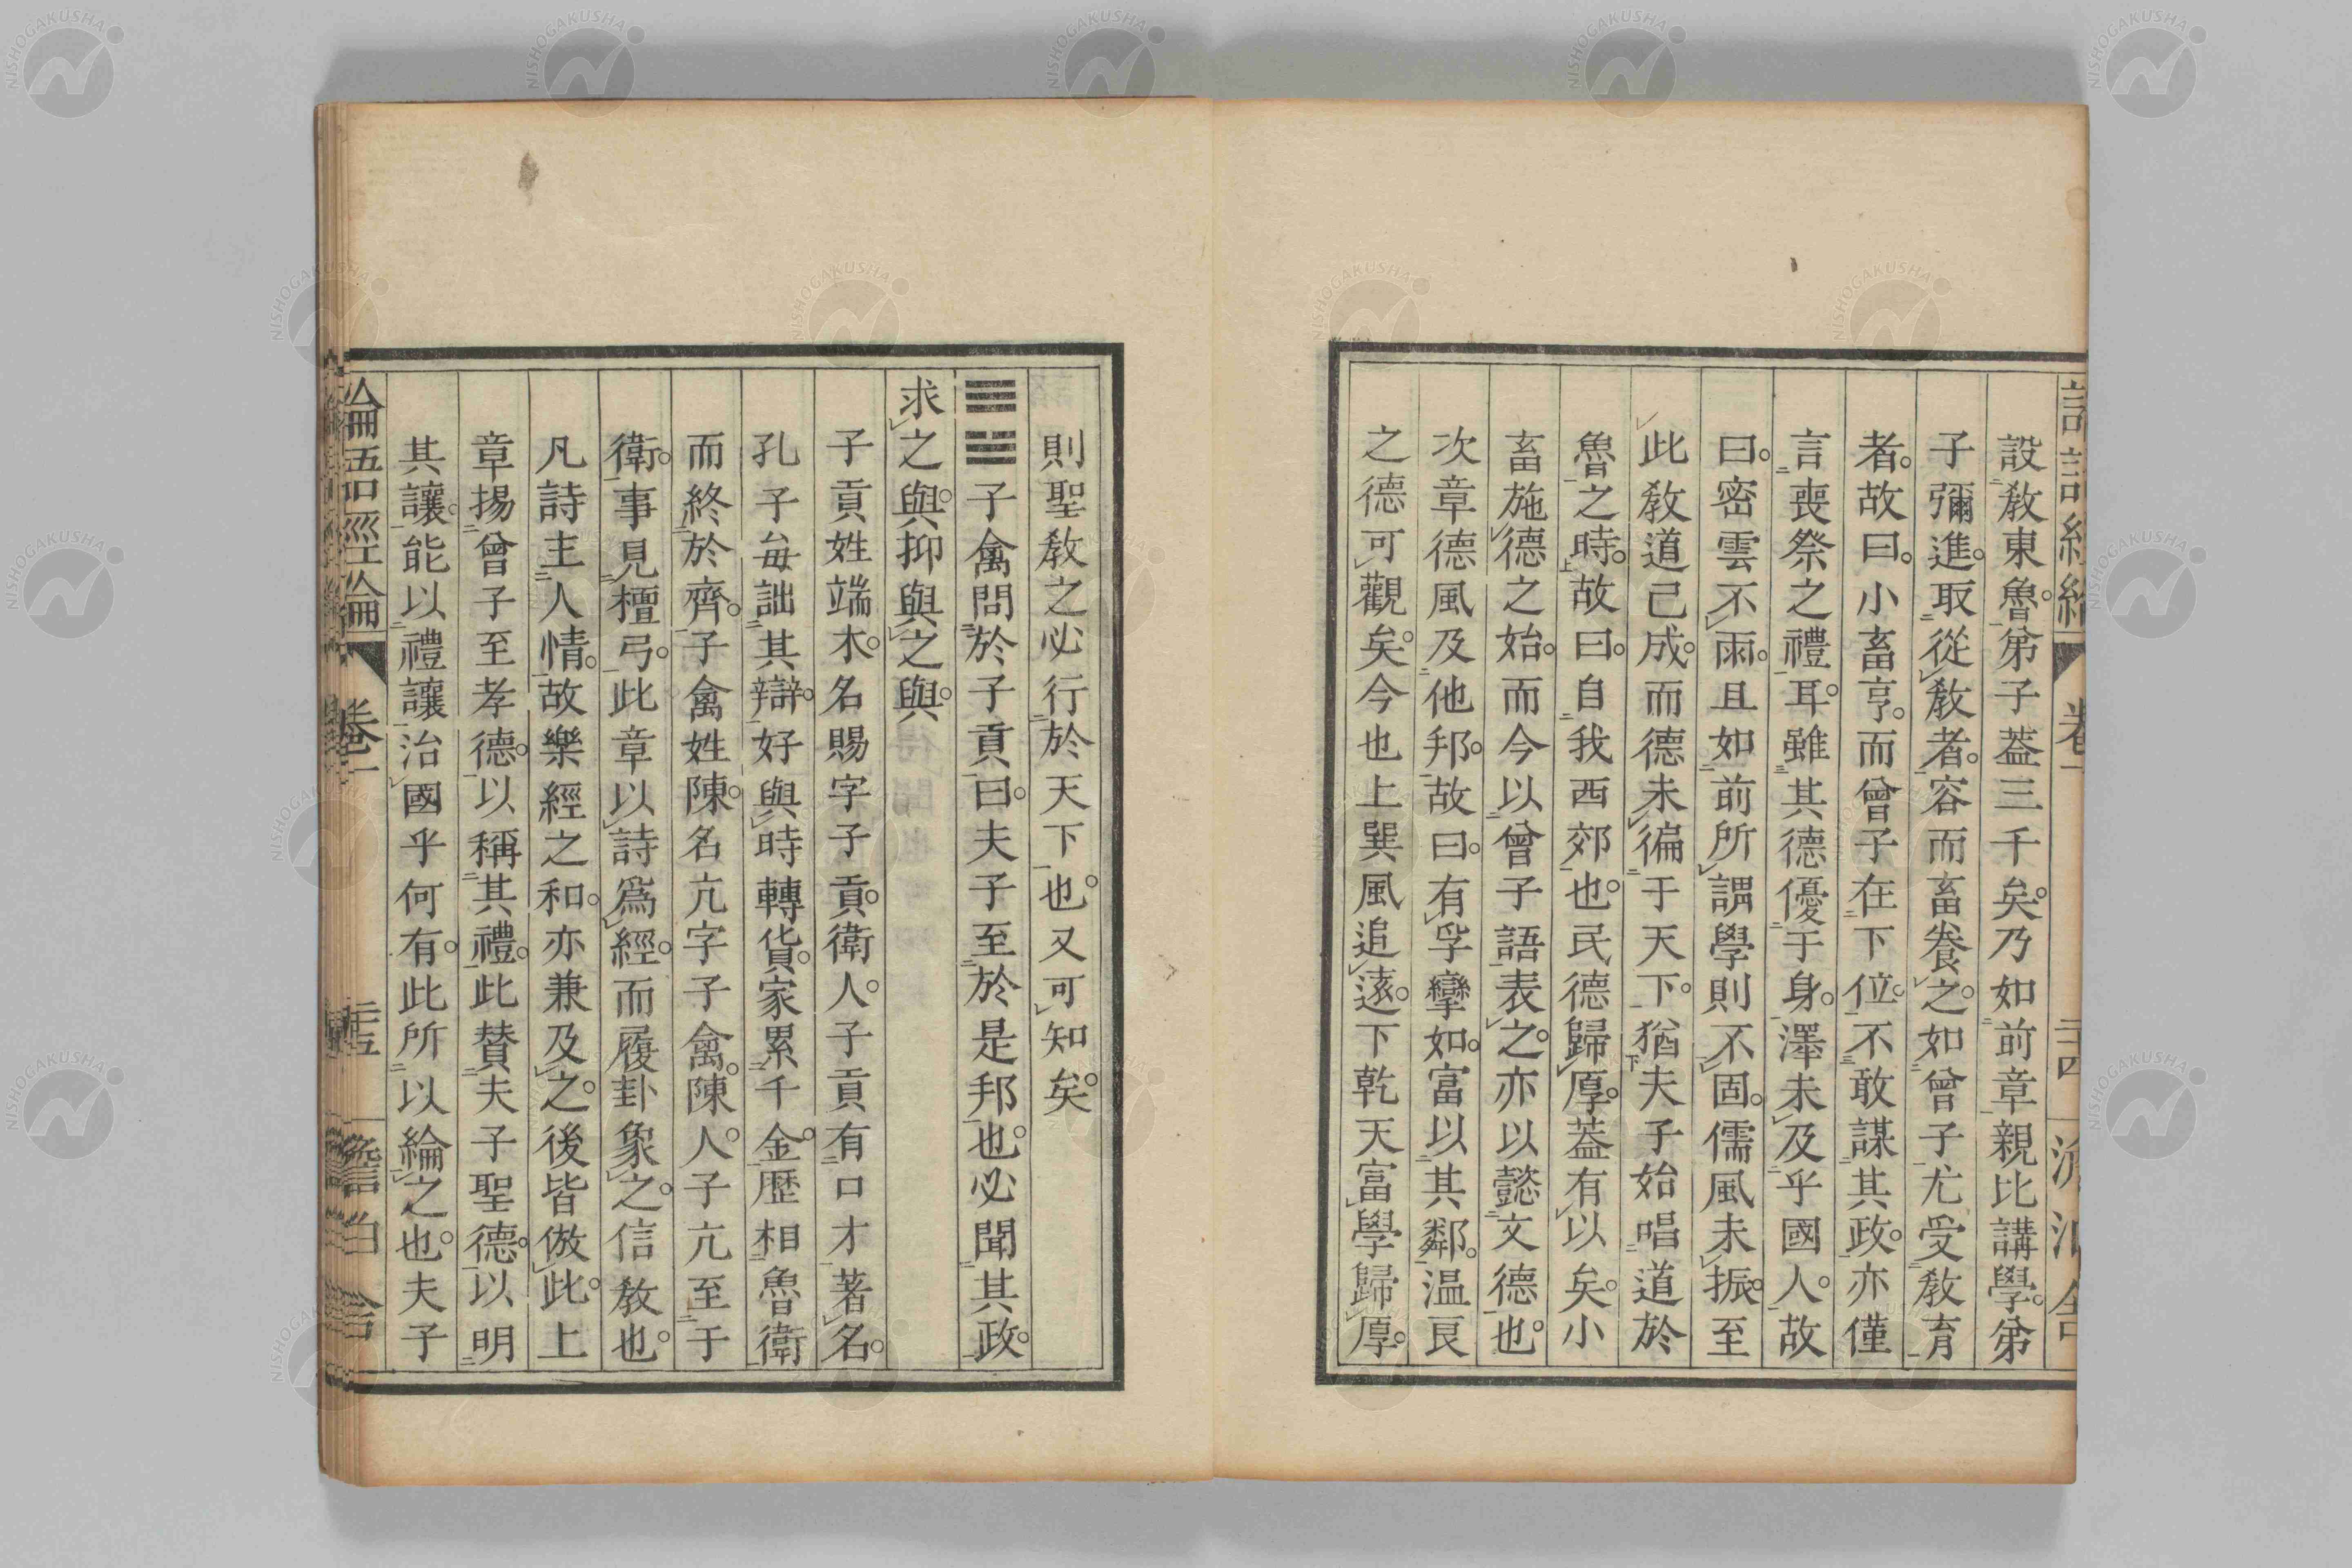 設敎東魯。弟子蓋三千矣。乃如前章親比講學。弟
子彌進。取從敎者。容而畜養之。如曾子尤受敎育
者。故曰。小畜亨。而曾子在下位。不敢謀其政。亦僅
言喪祭之禮耳。雖其德優于身。澤未及乎國人。故
曰。密雲不雨。且如前所謂學則不固。儒風未振。至
此敎道已成。而德未徧于天下。猶夫子始唱道於
魯之時。故曰。自我西郊也。民德歸厚。蓋有以矣。小
畜施德之始。而今以曾子語表之。亦以懿文德也。
次章德風及他邦。故曰。有孚攣如。富以其鄰。温良
之德可觀矣。今也上巽風追遠。下乾天富學歸厚。
則聖敎之必行於天下也。又可知矣。
䷉子禽問於子貢曰。夫子至於是邦也。必聞其政。
求之與。抑與之與。
子貢姓端木。名賜字子貢。衛人。子貢有口才著名。
孔子每詘其辯。好與時轉貨。家累千金。歷相魯衛
而終於齊。子禽姓陳。名亢字子禽。陳人。子亢至于
衛。事見檀弓。此章以詩爲經。而履卦象之。信敎也。
凡詩主人情。故樂經之和。亦兼及之。後皆倣此。上
章揚曾子至孝德。以稱其禮。此賛夫子聖德。以明
其讓。能以禮讓治國乎何有。此所以綸之也。夫子
論語經綸 卷一 二十五 澹泊舍